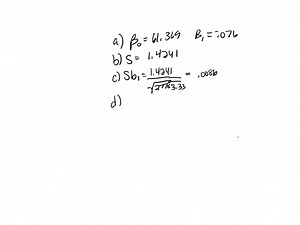 a) β₀ = 61.369 β₁ = .076
b) S = 1.4241
c) Sb₁ = 1.4241 / = .0086
d)